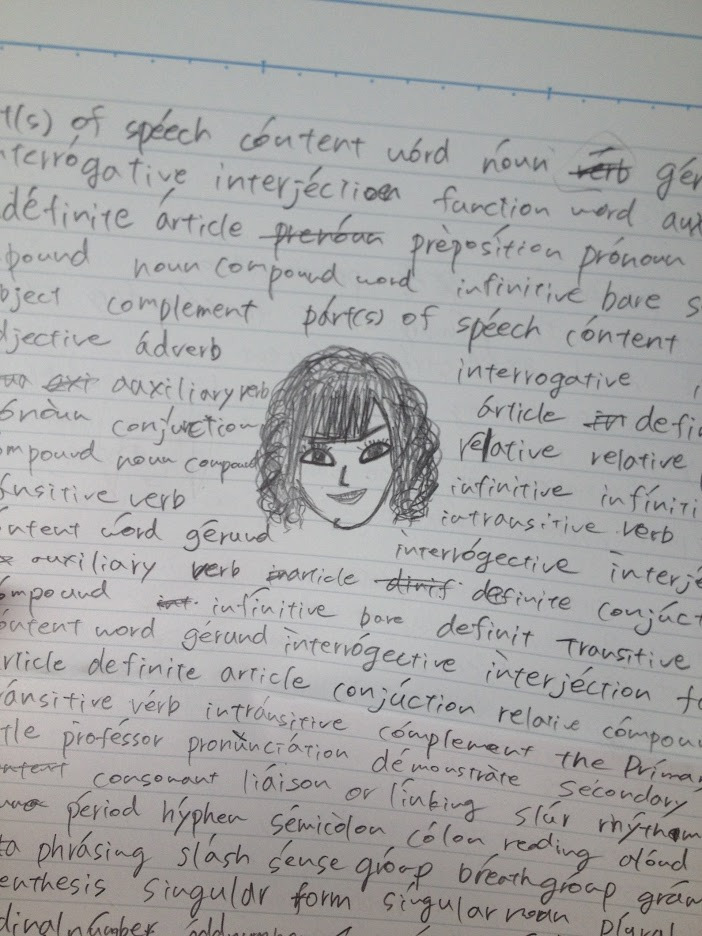 t(s) of spéech cóntent word nóun verb gér
nterrógative interjéction function word aux
définite árticle pronóun prèposítion prónoun
pound noun compound word infinitive bare s
bject complement párt(s) of spéech cóntent
djective ádverb interrogative
auxiliary verb árticle defin
ónoun conjunction relative relative
ompound noun compound infinitive infiniti
ansitive verb intransitive verb
ontent word gérund interrógective interjé
auxiliary verb article definite conjúct
ompound infinitive bare definit transitive
óntent word gérund interrógective interjéction
rticle definite article conjúction relative cómpou
ránsitive vérb intránsitive cómplement the Primar
tle proféssor pronùnciátion démonstràte sécondary
ntent consonant liáison or línking slúr rhýthm
périod hýphen sémicòlon cólon reading alóud
phrásing slásh sénse gróup bréath group gram
enthesis síngular form síngular noun plural
dinal number